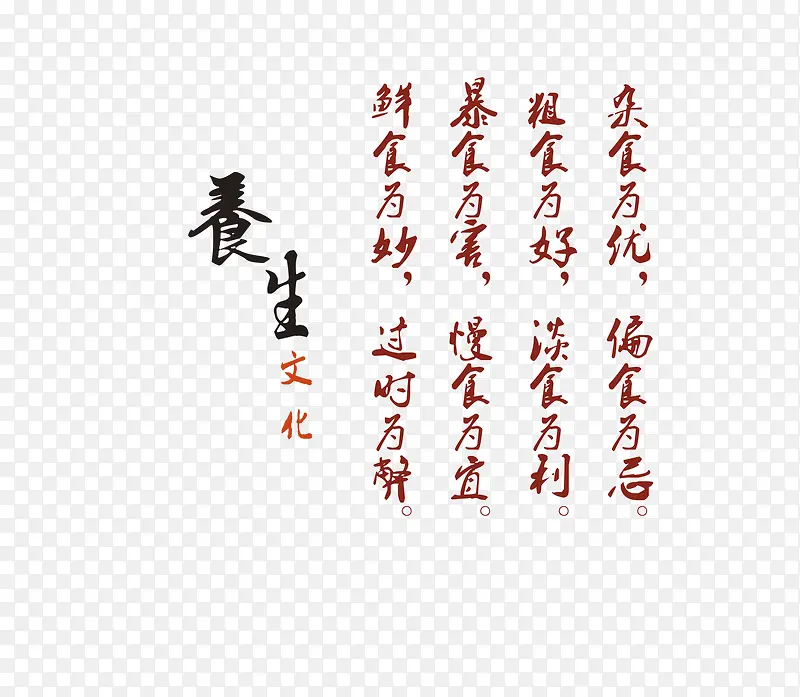 杂食为优,偏食为忌。
粗食为好,淡食为利。
暴食为害,慢食为宜。
鲜食为妙,过时为
養生
文化